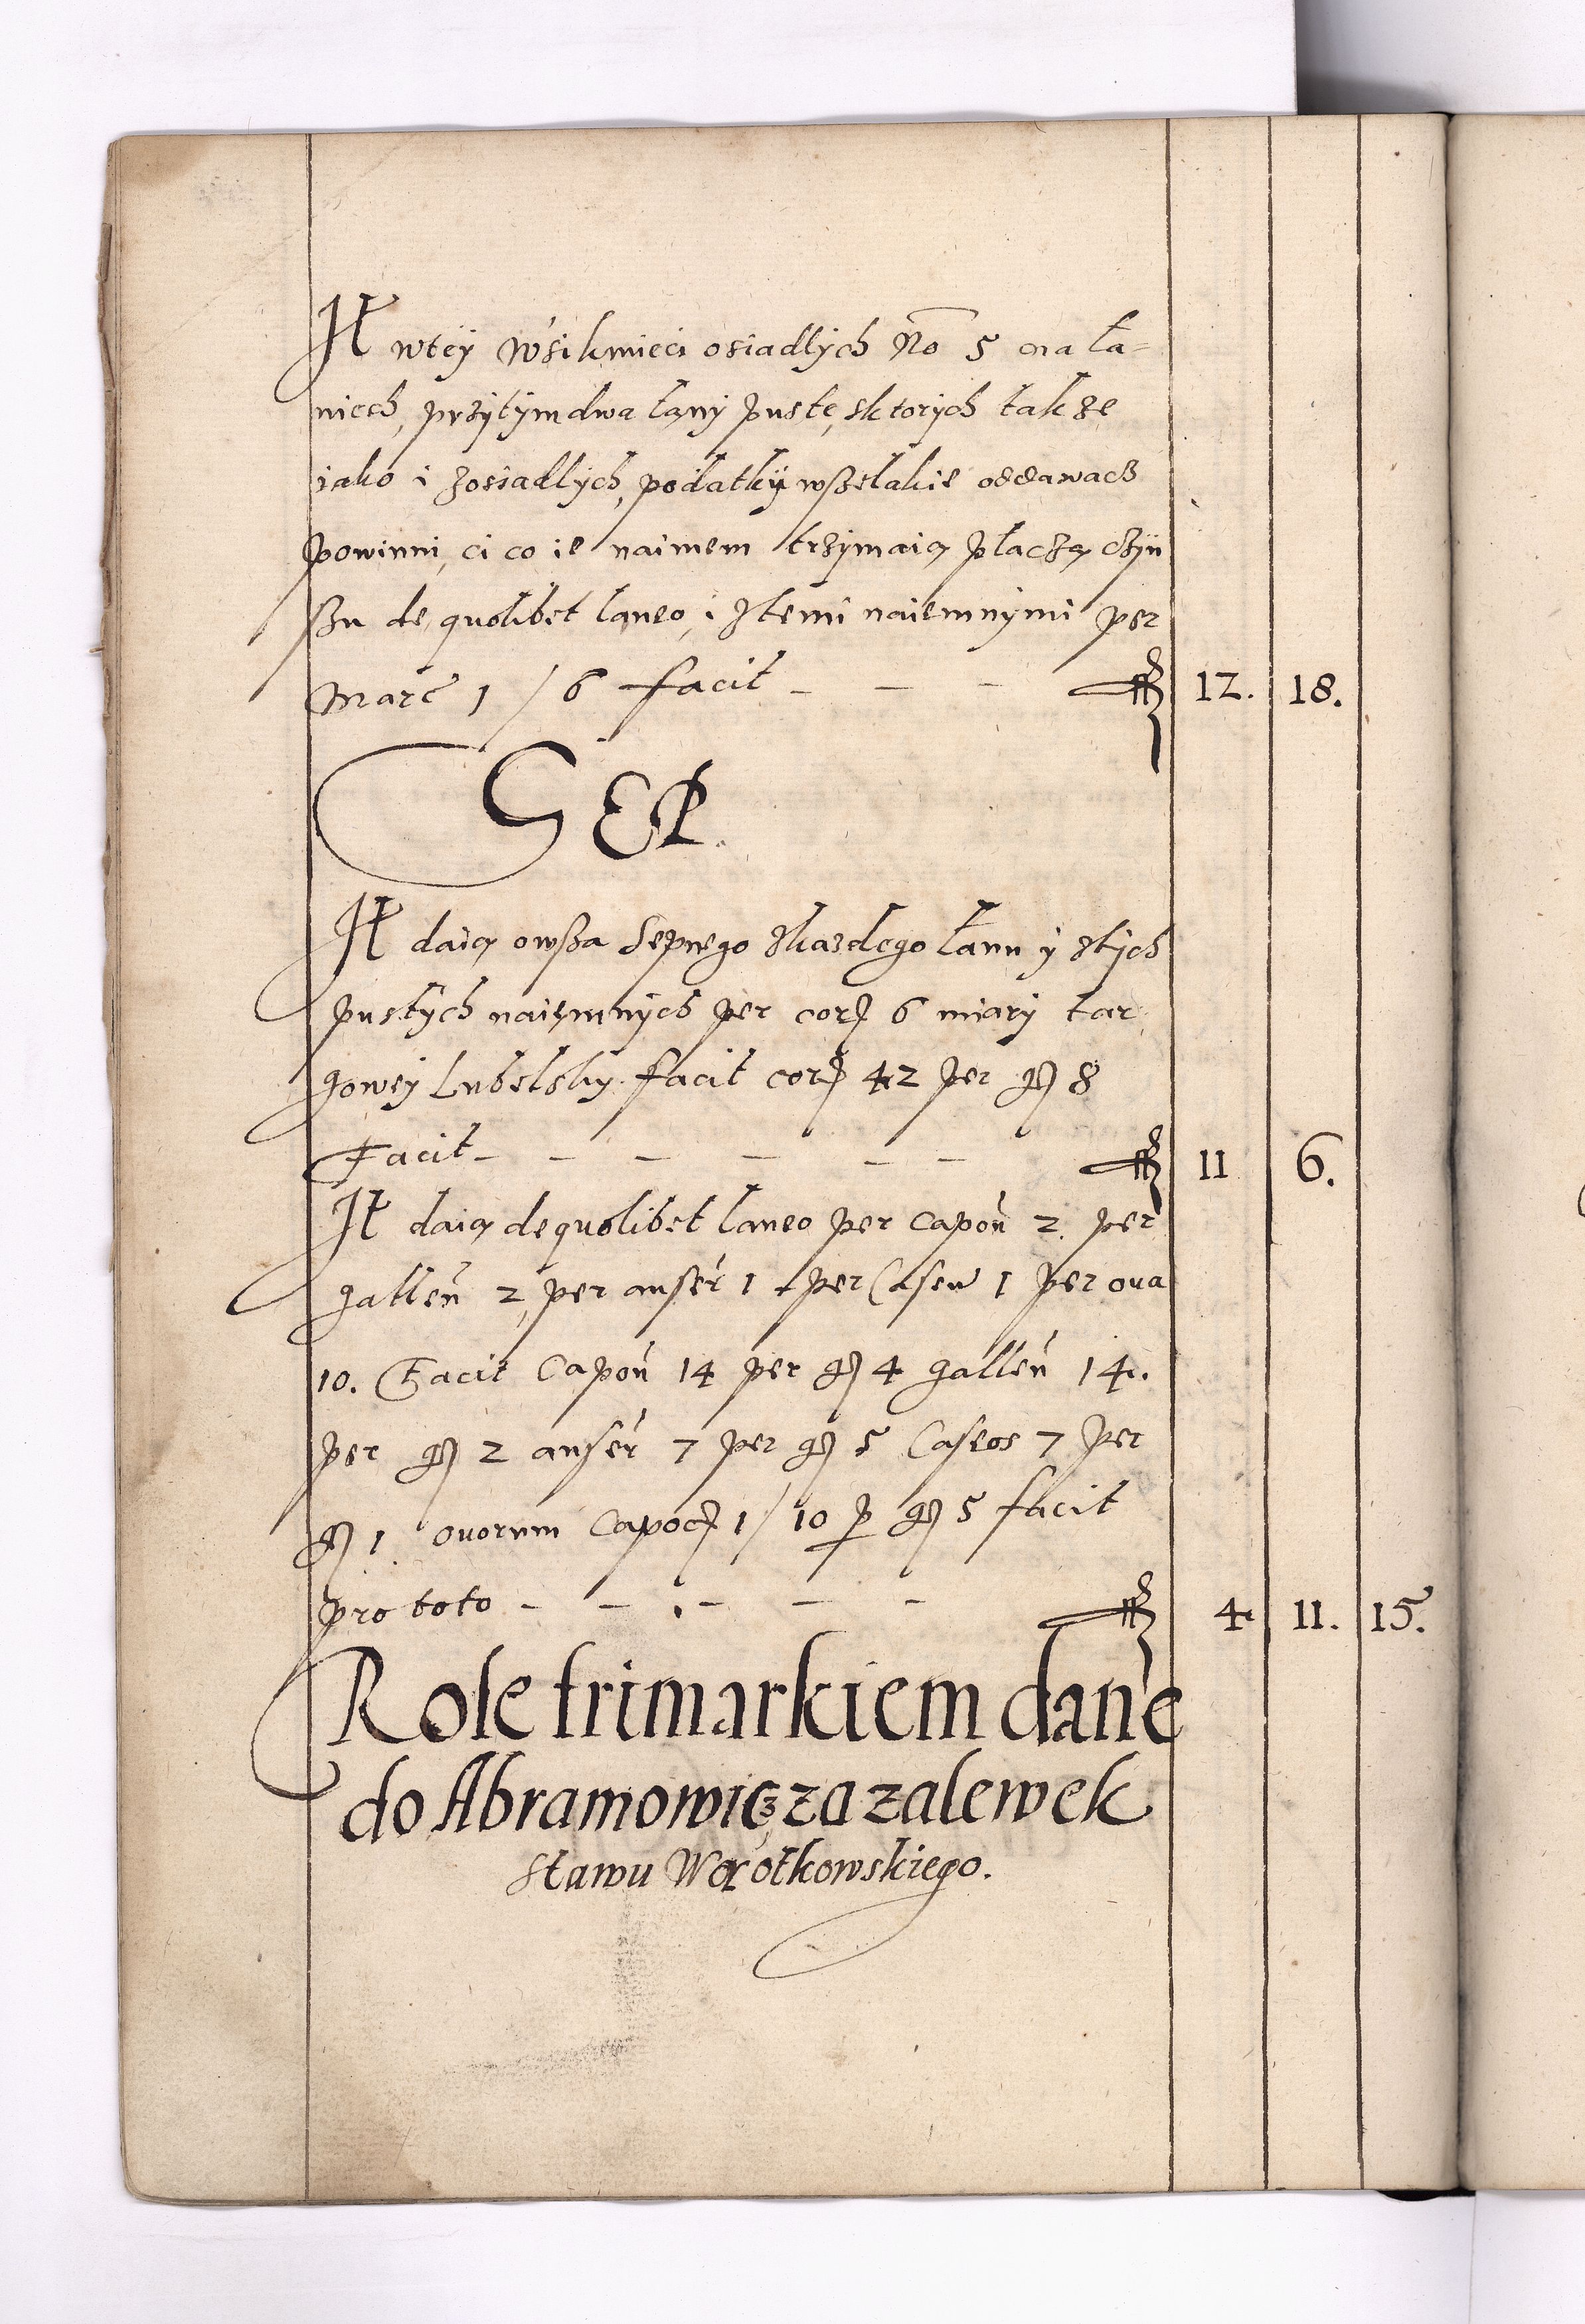 It wtey wsi kmieci osiadlych No 5 na ła-
niech, przytym dwa łany puste, sktorych takze
iako i zosiadlych, podatky wszelakie oddawacz
powinni, ci co ie naimem trzymaią płaczą czyn
szu de quolibet laneo, i ztemi naiemnymi per
Marc 1 / 6 facit - - - fl 12. 18.
SEP.
It daią owsza Sepnego zkazdego łanu y ztych
pustych naiemnych per cor 6 miary tar
gowey Lubelsky. facit cor 42 per gr 8
Facit - - - - - - fl 11 6.
It daią de quolibet laneo per capon 2. per
gallen 2, per anser 1 per Caseu 1 per ova
10. Facit Capon 14 per gr 4 gallen 14.
per gr 2 anser 7 per gr 5 Caseos 7 per
gr 1. ovorum Capoc 1/10 p gr 5 facit
pro toto - - - - - fl 4 11. 15.
Role frimarkiem dane
do Abramowicz za zalewek
Stawu Worotkowskiego.